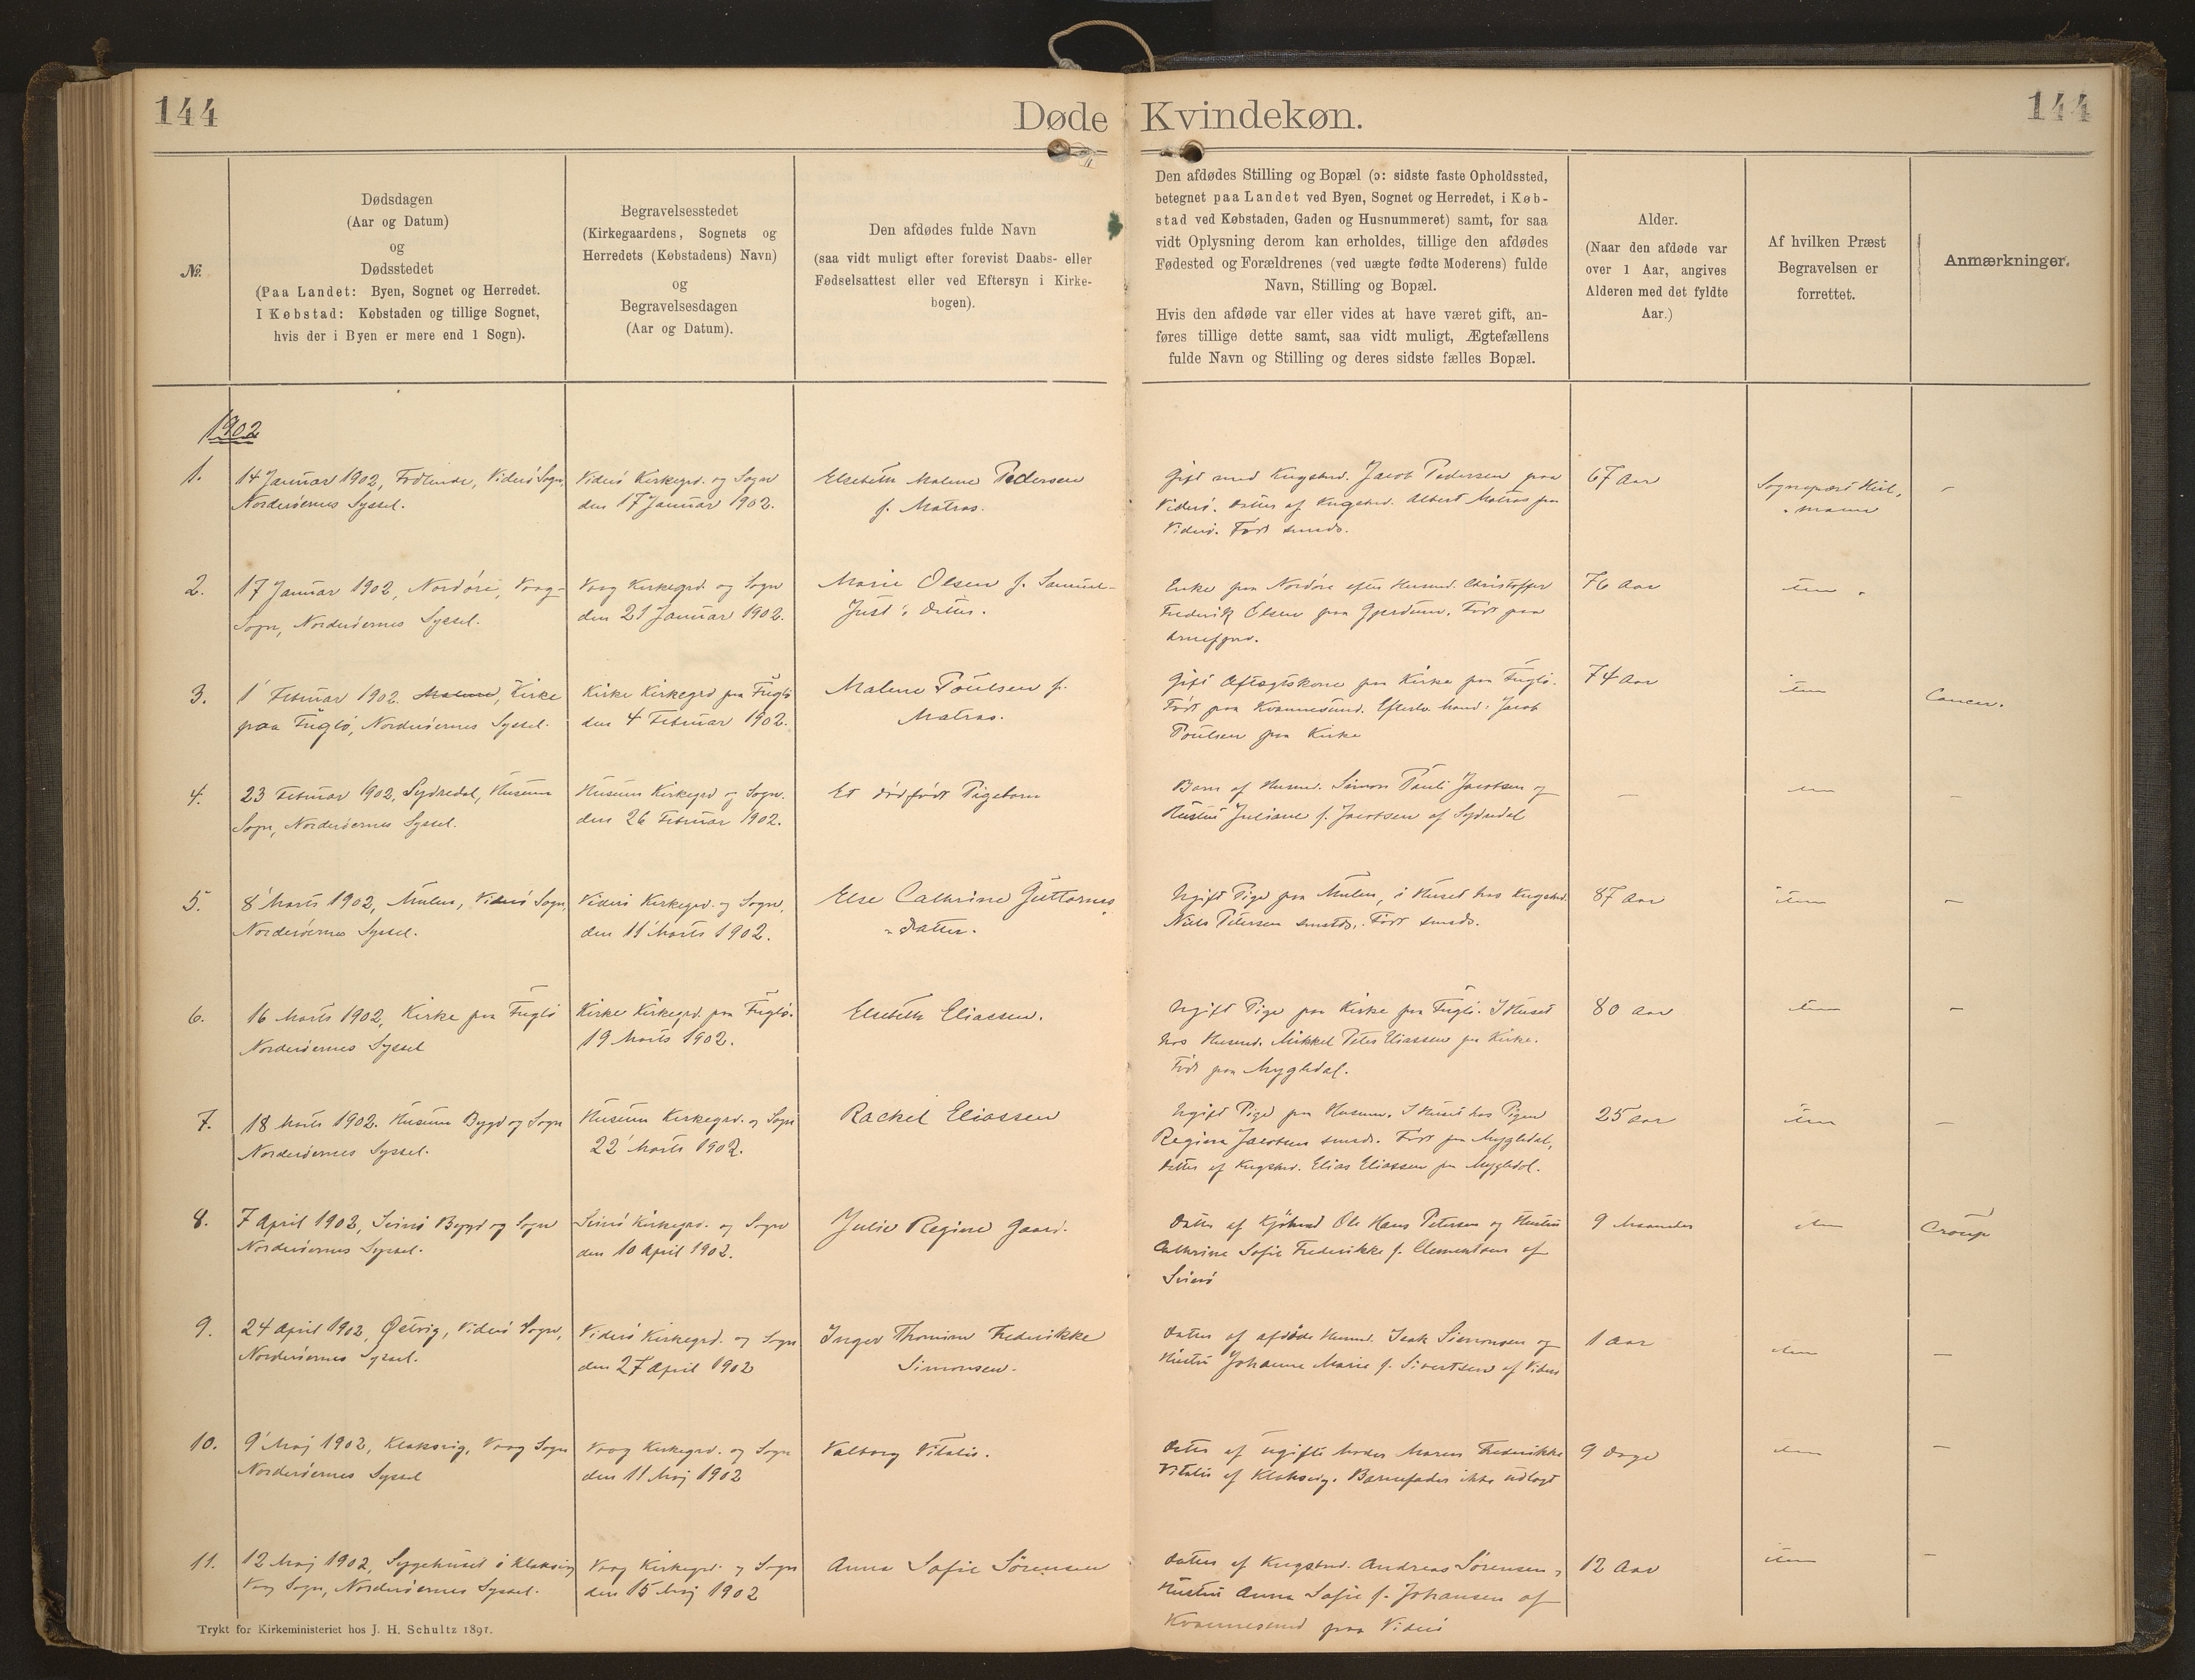 144
Døde Kvindekøn.
144
№.
Dødsdagen
(Aar og Datum)
og
Dødsstedet
(Paa Landet: Byen, Sognet og Herredet.
I Købstad: Købstaden og tillige Sognet,
hvis der i Byen er mere end 1 Sogn).
Begravelsesstedet
(Kirkegaardens, Sognets og
Herredets (Købstadens) Navn)
og
Begravelsesdagen
(Aar og Datum).
Den afdødes fulde Navn
(saa vidt muligt efter forevist Daabs- eller
Fødselsattest eller ved Eftersyn i Kirke-
bogen).
Den afdødes Stilling og Bopæl (ɔ: sidste faste Opholdssted,
betegnet paa Landet ved Byen, Sognet og Herredet, i Køb-
stad ved Købstaden, Gaden og Husnummeret) samt, for saa
vidt Oplysning derom kan erholdes, tillige den afdødes
Fødested og Forældrenes (ved uægte fødte Moderens) fulde
Navn, Stilling og Bopæl.
Hvis den afdøde var eller vides at have været gift, an-
føres tillige dette samt, saa vidt muligt, Ægtefællens
fulde Navn og Stilling og deres sidste fælles Bopæl.
Alder.
(Naar den afdøde var
over 1 Aar, angives
Alderen med det fyldte
Aar.)
Af hvilken Præst
Begravelsen er
forrettet.
Anmærkninger.
1902
1.
14 Januar 1902, Viderö Sogn,
Norderöernes Syssel.
Viderö Kirkegrd. og Sogn
den 17 Januar 1902.
Elsebeth Malene Pedersen
f. Matras.
Gift med Kngsbnd. Jacob Pedersen paa
Viderö. Datter af Kngsbnd. Albert Matras paa
Viderö. Født smsds.
67 Aar
Sognepræst
-
2.
17 Januar 1902, Nordöre, Vaag-
Sogn, Norderöernes Syssel.
Vaag Kirkegrd. og Sogn
den 21 Januar 1902.
Marie Olsen f. Samuel-
Datter.
Enke paa Nordöre efter Husmd. Christoffer
Frederik Olsen paa Gjerdum. Født paa
76 Aar
item
3.
1' Februar 1902. Kirke
paa Fuglö, Norderöernes Syssel.
Kirke Kirkegrd paa Fuglö
den 4 Februar 1902.
Malene Poulsen f.
Matras.
Gift Aftægtskone paa Kirke paa Fuglö.
Født paa Kvannesund. Efterlv. Mand: Jacob
Poulsen paa Kirke
74 Aar
item
Cancer.
4.
23 Februar 1902, Sydredal, Husum
Sogn, Norderöernes Syssel.
Husum Kirkegrd og Sogn.
den 26 Februar 1902.
Et dödfødt Pigebarn
Barn af Husmd. Simon Pauli Jacobsen og
Hustru Juliane f. Jacobsen af Sydredal
-
item
-
5.
8' Marts 1902, Mulen, Viderö Sogn,
Norderöernes Syssel.
Viderö Kirkegrd. og Sogn,
den 11' Marts 1902.
Else Cathrine Guttorms
-datter.
Ugift Pige paa Mulen, i Huset hos Kngsbnd.
Niels Petersen smstds. Født smsds.
87 Aar
item
-
6.
16 Marts 1902, Kirke paa Fuglö
Norderöernes Syssel
Kirke Kirkegrd. paa Fuglö.
19 Marts 1902.
Elsebeth Eliassen.
Ugift Pige paa Kirke paa Fuglö. I Huset
hos Husmd. Mikkel Peter Eliassen paa Kirke.
Født paa Mygledal.
80 Aar
item
-
7.
18 Marts 1902. Husum Bygd og Sogn
Norderöernes Syssel.
Husum Kirkegrd. og Sogn
22' Marts 1902.
Rachel Eliassen
Ugift Pige paa Husum. I Huset hos Pigen
Regina Jacobsen smsds. Født paa Mygledal,
Datter af Kngsbnd. Elias Eliassen paa Mygledal.
25 Aar
item
-
8.
7 April 1902, Svinö Bygd og Sogn
Norderöernes Syssel.
Svinö Kirkegrd. og Sogn
den 10 April 1902.
Julie Regine Gaard.
Datter af Ole Hans Petersen og Hustru
Cathrine Sofie Frederikke f. Clementsen af
Svinö
9 Maaneder
item
Croup
9.
24 April 1902, Østvig, Viderö Sogn,
Norderöernes Syssel.
Viderö Kirkegrd. og Sogn
den 27 April 1902
Inger Thomine Frederikke
Simonsen.
Datter af afdøde Husmd. Isak Simonsen og
Hustru Johanne Marie f. Sivertsen af Viderö
1 Aar
item
-
10.
9' Maj 1902, Klaksvig, Vaag Sogn
Norderöernes Syssel
Vaag Kirkegrd. og Sogn
den 11 Maj 1902
Valborg Vitalis.
Datter af ugifte Moder Maren Frederikke
Vitalis af Klaksvig. Barnefader ikke udlagt
9 Dage
item
-
11.
12 Maj 1902, Sygehuset i Klaksvig
Vaag Sogn, Norderöernes Syssel.
Vaag Kirkegrd. og Sogn
den 15 Maj 1902
Anna Sofie Sörensen
Datter af Kngsbnd. Andreas Sörensen og
Hustru Anna Sofie f. Johansen af
Kvannesund paa Viderö
12 Aar
item
-
Trykt for Kirkeministeriet hos J. H. Schultz 1891.